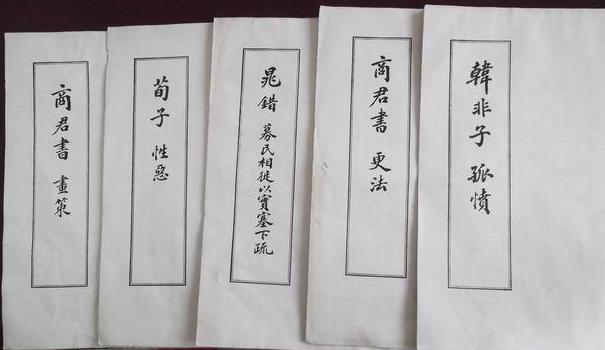 韓非子 孤憤
商君書 更法
晁錯 募民相徙以實塞下疏
荀子 性惡
商君書 畫策